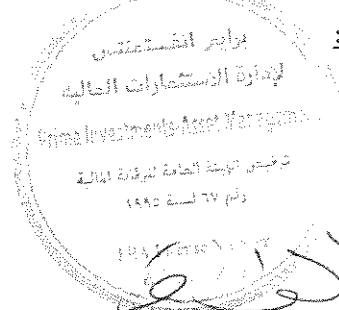 برايم انفستمنتس
لإدارة الاستثمارات المالية
Prime Investments Asset Management
ترخيص الهيئة العامة للرقابة المالية
رقم ٦٧ لسنة ١٩٩٥